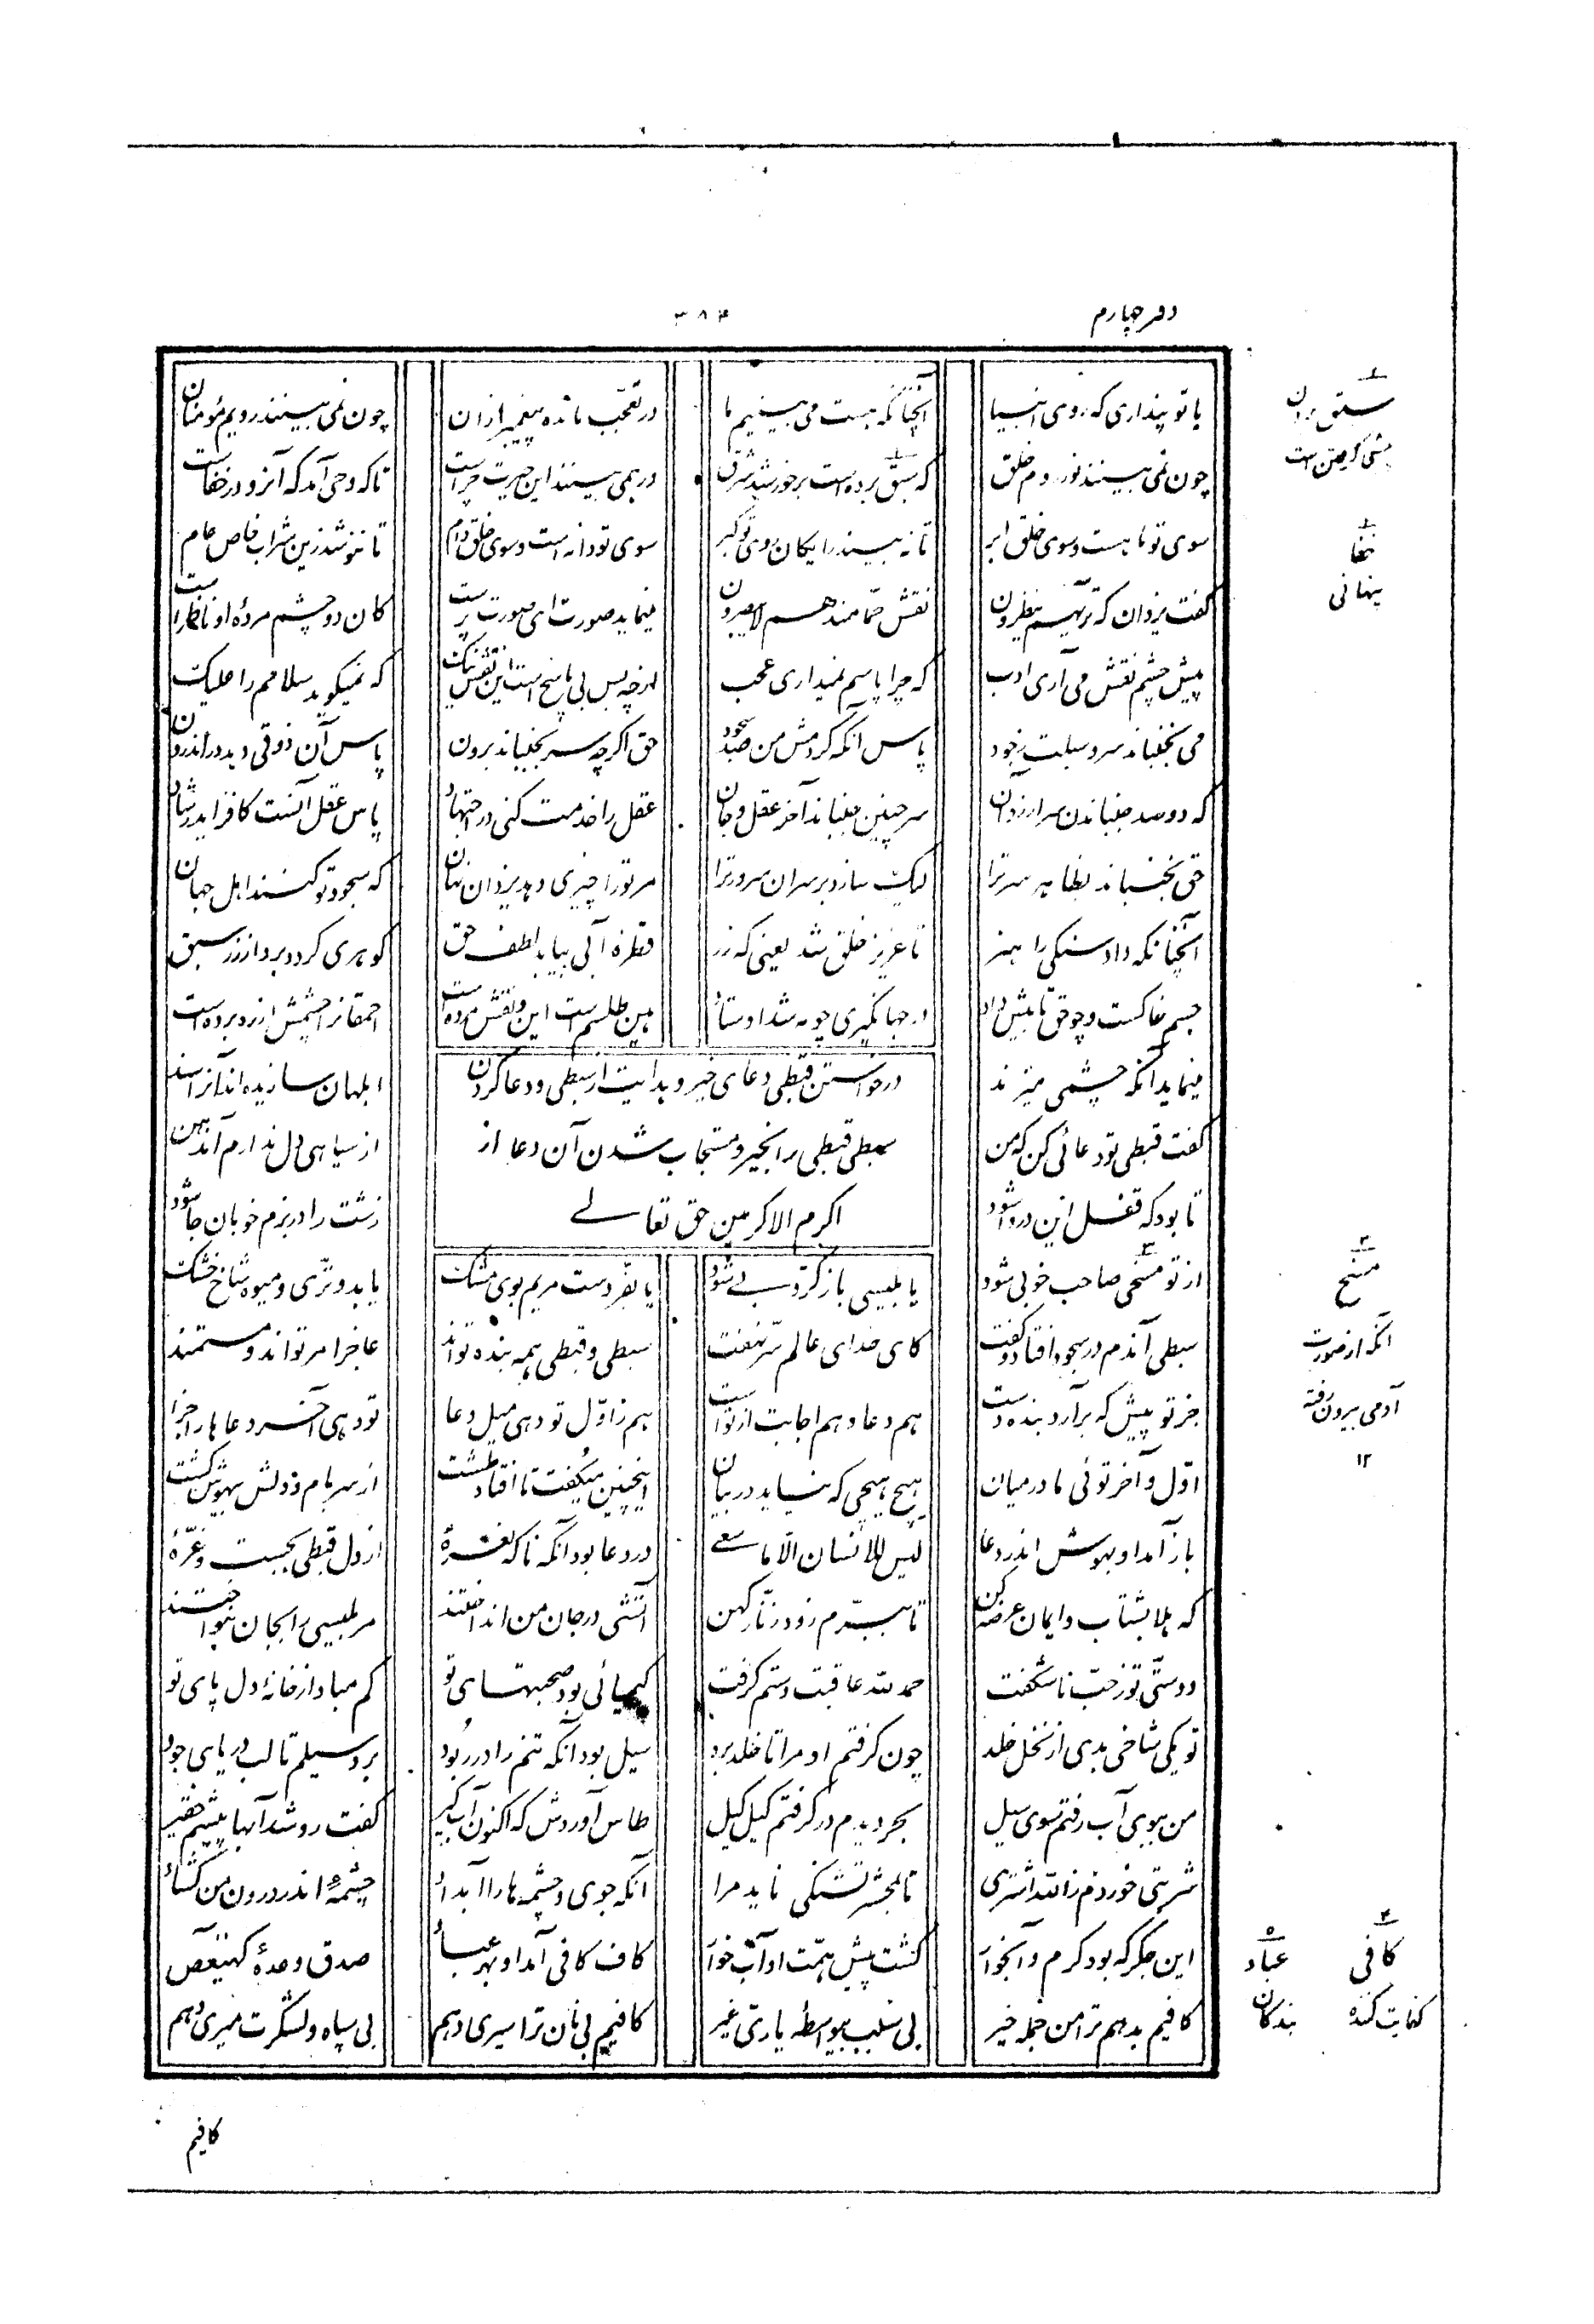 دفتر چهارم
۳۸۴
یا تو پنداری که روی انبیا
آنچنانکه هست می بینیم ما
در تعجّب مانده پیغمبر ازان
چون نمی بینند رویم مؤمنان
چون نمی بینند نور روم خلق
که سبق برده است بر خورشید شرق
ور همی بینند این حیرت چراست
تا که وحی آمد که آنرو در خفاست
سوی تو ماهست و سوی خلق ابر
تا نه بیند رایکان روی تو کبر
سوی تو دانه است و سوی خلق دام
تا ننوشد زین شراب خاص عام
کفت یزدان که تریهم ینظرون
نقش حمّامند هم لا یبصرون
مینماید صورت ای صورت پرست
کان دو چشم مردهٔ او ناظراست
پیش چشم نقش می آری ادب
که چرا پاسم نمیداری عجب
از چه بس بی پاسخ است این نقش نیک
که نمیکوید سلامم را علیک
می نجنباند سر و سبلت ز جود
پاس آنکه کردمش من صد سجود
حق اکرچه سر نجنباند برون
پاس آن ذوقی دهد در اندرون
که دو صد جنباندن سر ارزد آن
سر چنین جنباند آخر عقل و جان
عقل را خدمت کنی در اجتهاد
پاس عقل آنست کافزاید رشاد
حق نجنباند بظاهر سر ترا
لیک سازد بر سران سرور ترا
مر تورا چیزی دهد یزدان نهان
که سجود تو کنند اهل جهان
آنچنانکه داد سنکی را هنر
تا عزیز خلق شد یعنی که زر
قطرهٔ آبی بیابد لطف حق
کوهری کردد برد از زر سبق
جسم خاکست و چو حق تابیش داد
در جهانکیری چو مه شد اوستاد
هین طلسم است این و نقش مرده است
احمقانرا چشمش از ره برده است
مینماید آنکه چشمی میزند
ابلهان سازیده اند آنرا سند
درخواستن قبطی دعای خیر و هدایت از سبطی و دعا کردن
سبطی قبطی را بخیر و مستجاب شدن آن دعا از
اکرم الاکرمین حق تعالے
کفت قبطی تو دعائی کن که من
از سیاهی دل ندارم آن دهن
تا بود که قفل این در وا شود
زشت را در بزم خوبان جا شود
از تو مسخی صاحب خوبی شود
یا بلیسی باز کرّوبی شود
یا بفرّ دست مریم بوی مشک
یابد و ترّی و میوه شاخ خشک
سبطی آندم در سجود افتاد و کفت
کای خدای عالم سرّ و نهفت
سبطی و قبطی همه بنده تواند
عاجز امر تواند و مستمند
جز تو پیش که برآرد بنده دست
هم دعا و هم اجابت از تو است
هم ز اوّل تو دهی میل دعا
تو دهی آخر دعاها را جزا
اوّل و آخر توئی ما در میان
هیچ هیچی که نیاید در بیان
اینچنین میکفت تا افتاد طشت
از سر بام و دلش بیهوش کشت
باز آمد او بهوش اندر دعا
لیس للانسان الّا ما سعے
در دعا بود آنکه ناکه نعرهٔ
از دل قبطی بجست و غرّهٔ
که هلا بشتاب و ایمان عرضه کن
تا ببرّم زود زنّار کهن
آتشی در جان من انداختند
مر بلیسی را بجان بنواختند
دوستّی تو ز حبّ ناشکفت
حمد لله عاقبت دستم کرفت
کیمیائی بود صحبتهای تو
کم مباد از خانهٔ دل پای تو
تو یکی شاخی بدی از نخل خلد
چون کرفتم او مرا تا خلد برد
سیل بود آنکه تنم را در ربود
برد سیلم تا لب دریای جود
من ببوی آب رفتم سوی سیل
بحر دیدم در کرفتم کیل کیل
طاس آوردش که اکنون آب کیر
کفت رو شد آبها پیشم حقیر
شربتی خوردم ز الله اشتری
تا بمحشر تشنکی ناید مرا
آنکه جوی و چشمه ها را آب داد
چشمهٔ اندر درون من کشاد
این جکر که بود کرم و آبخوار
کشت پیش همّت او آب خوار
کاف کافی آمد او بهر عباد
صدق وعدهٔ کهیعص
کافیم بدهم ترا من جمله خیر
بی سبب بیواسطه یارّی غیر
کافیم بی نان ترا سیری دهم
بی سپاه و لشکرت میری دهم
خفا
پنهانی
مسخ
آنکه از صورت
آدمی بیرون رفته
۱۲
کافی
کفایت کننده
عباد
بندکان
کافیم